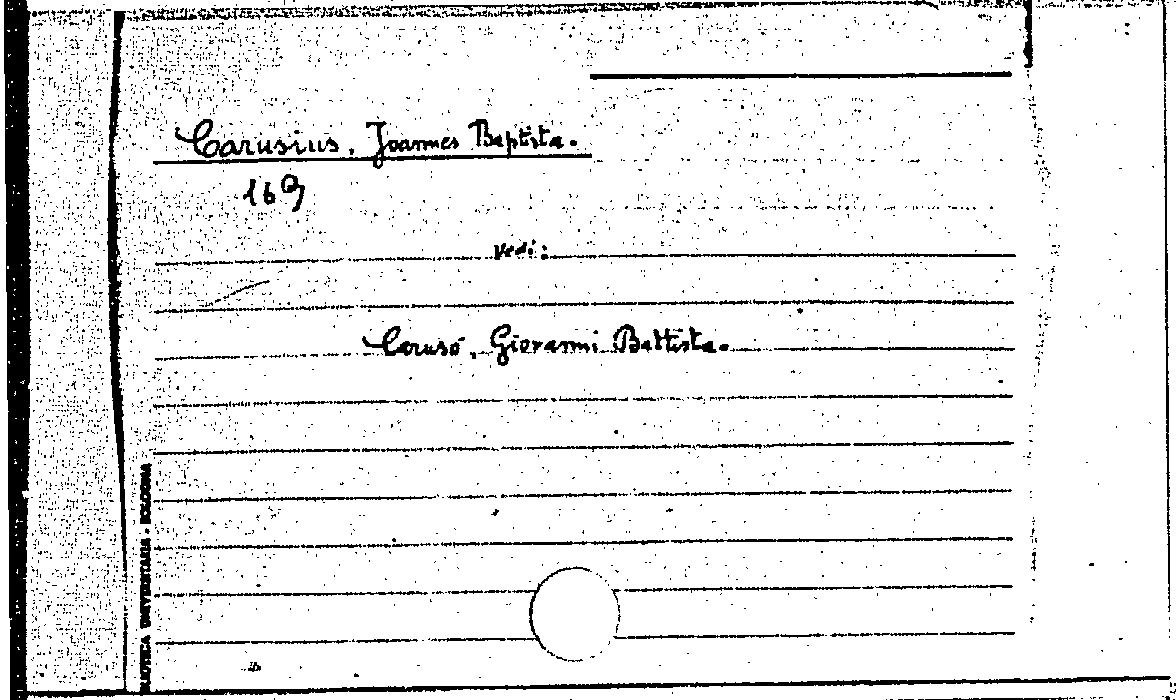 Carusius, Joannes Baptista.
vedi:
Caruso, Giovanni Battista.
BLIOTECA UNIVERSITARIA . BOLOGNA